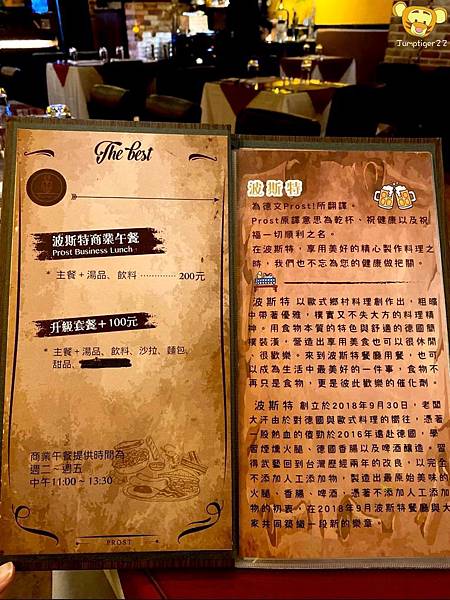 Jumptiger22
The best
波斯特商業午餐
Prost Business Lunch
* 主餐+湯品、飲料 ············ 200元
升級套餐+100元
* 主餐+湯品、飲料、沙拉、麵包、
甜品、
商業午餐提供時間為
週二～週五
中午11:00~13:30
PROST
波斯特
為德文Prost!所翻譯。
Prost原譯意思為乾杯、祝健康以及祝
福一切順利之名。
在波斯特,享用美好的精心製作料理之
時,我們也不忘為您的健康做把關。
波斯特 以歐式鄉村料理創作出,粗曠
中帶著優雅,樸實又不失大方的料理精
神。用食物本質的特色與舒適的德國簡
樸裝潢,營造出享用美食也可以很休閒
,很歡樂。來到波斯特餐廳用餐,也可
以成為生活中最美好的一件事,食物不
再只是食物,更是彼此歡樂的催化劑。
波斯特 創立於2018年9月30日,老闆
大汗由於對德國與歐式料理的嚮往,憑著
一股熱血的傻勁於2016年遠赴德國,學
習煙燻火腿、德國香腸以及啤酒釀造。習
得武藝回到台灣歷經兩年的改良,以完全
不添加人工添加物,製造出最原始美味的
火腿、香腸、啤酒,憑著不添加人工添加
物的初衷,在2018年9月波斯特餐廳與大
家共同築織一段新的樂章。